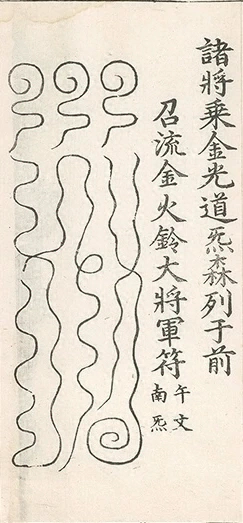 諸將乘金光道炁森列于前
召流金火鈴大將軍符
午文
南炁